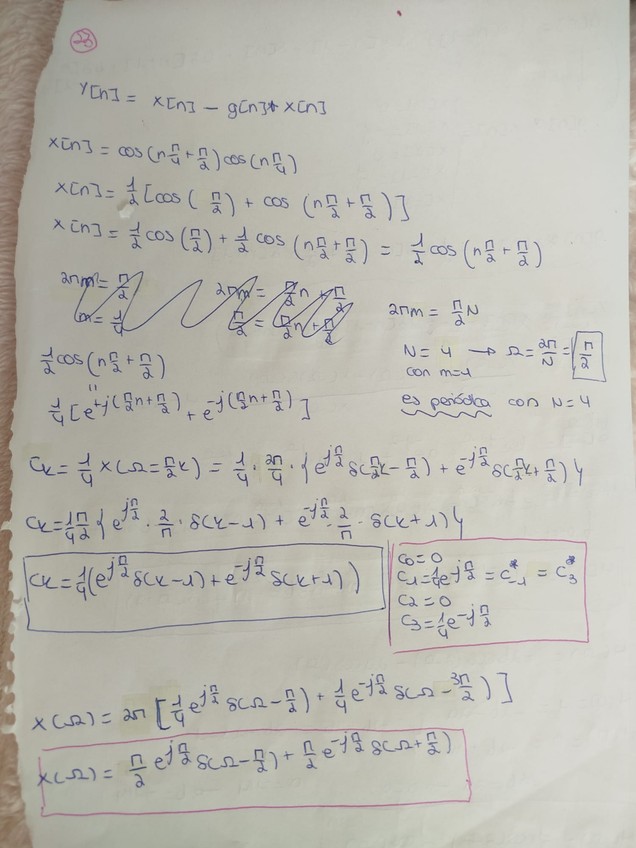 28
y[n] = x[n] - g[n]* x[n]
x[n] = cos(n π/4 + π/2) cos(n π/4)
x[n] = 1/2 [cos( π/2) + cos (n π/2 + π/2)]
x[n] = 1/2 cos(π/2) + 1/2 cos (n π/2 + π/2) = 1/2 cos(n π/2 + π/2)
2πm = π/2 2πm = π/2 n + π/2
m = 1/4 π/2 = π/2 n + π/2
2πm = π/2 N
N = 4 → Ω = 2π/N = π/2
con m=1
es periódica con N=4
1/2 cos(n π/2 + π/2)
"
1/4 [e^{+j(π/2 n + π/2)} + e^{-j(π/2 n + π/2)}]
Ck = 1/4 x(Ω = π/2 k) = 1/4 · 2π/4 · { e^{jπ/2} δ(π/2 k - π/2) + e^{-jπ/2} δ(π/2 k + π/2) }
Ck = 1/4 π/2 { e^{jπ/2} · 2/π · δ(k-1) + e^{-jπ/2} · 2/π · δ(k+1) }
Ck = 1/4 (e^{jπ/2} δ(k-1) + e^{-jπ/2} δ(k+1))
C0 = 0
C1 = 1/4 e^{-jπ/2} = C*_{-1} = C*_3
C2 = 0
C3 = 1/4 e^{-jπ/2}
x(Ω) = 2π [1/4 e^{jπ/2} δ(Ω - π/2) + 1/4 e^{-jπ/2} δ(Ω - 3π/2)]
x(Ω) = π/2 e^{jπ/2} δ(Ω - π/2) + π/2 e^{-jπ/2} δ(Ω + π/2)